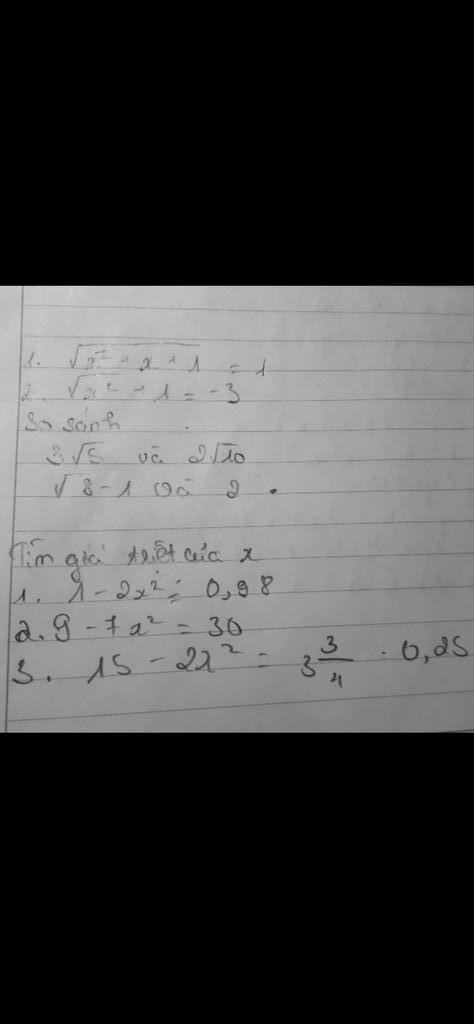 1. √x² + x + 1 = 1
2. √x² + 1 = -3
So sánh
3√5 và 2√10
√8 - 1 và 2.
Tìm giá trị của x
1. 1 - 2x² = 0,98
2. 9 - 7x² = 30
3. 15 - 2x² = 3 3/4 : 0,25